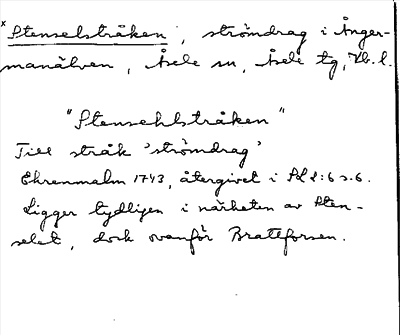 * Stenselstråken, strömdrag i Ånger-
manälven, Åsele sn, Åsele tg, Vb. l.
"Stensehlstråken"
Till stråk 'strömdrag'
Ehrenmalm 1743, återgivet i SL 2:6 s. 6.
Ligger tydligen i närheten av Sten-
selet, dock ovanför Brattforsen.